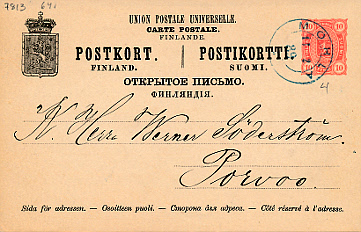 7813 641
UNION POSTALE UNIVERSELLE.
CARTE POSTALE.
FINLANDE.
POSTKORT. POSTIKORTTI.
FINLAND. SUOMI.
ОТКРЫТОЕ ПИСЬМО.
ФИНЛЯНДІЯ.
10 10
10 10
K. Herr Werner Söderström.
Porvoo.
Sida för adressen. — Osoitteen puoli. — Сторона для адреса. — Côté réservé à l'adresse.